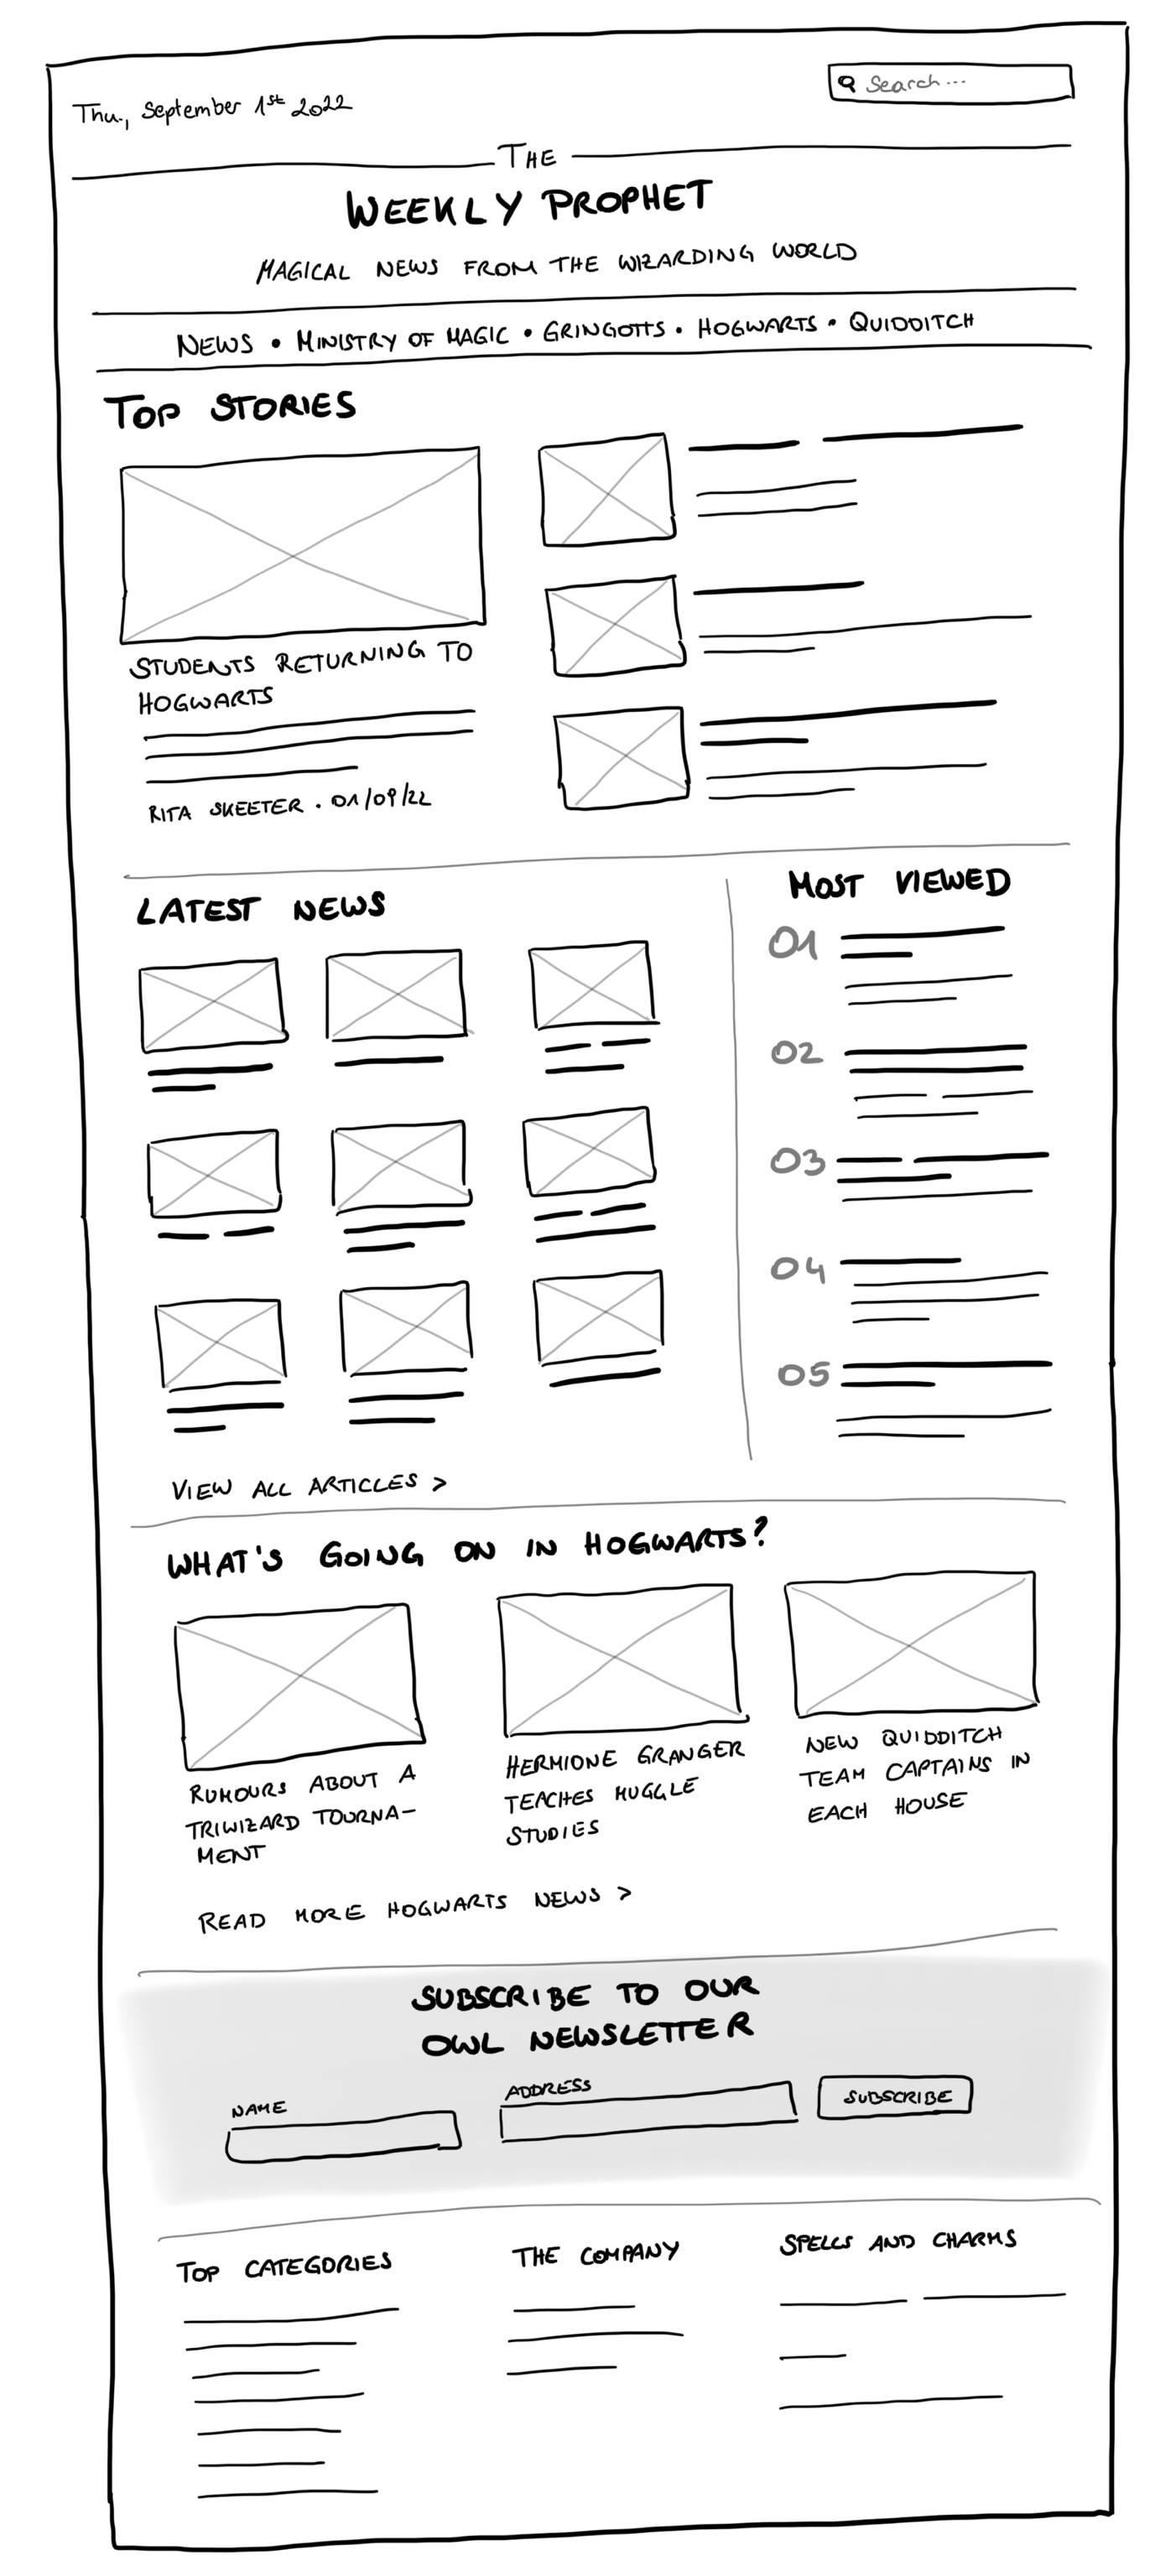 Thu., September 1st 2022
Search...
THE
WEEKLY PROPHET
MAGICAL NEWS FROM THE WIZARDING WORLD
NEWS • MINISTRY OF MAGIC • GRINGOTTS • HOGWARTS • QUIDDITCH
TOP STORIES
STUDENTS RETURNING TO
HOGWARTS
RITA SKEETER . 01/09/22
LATEST NEWS
MOST VIEWED
01
02
03
04
05
VIEW ALL ARTICLES >
WHAT'S GOING ON IN HOGWARTS?
RUMOURS ABOUT A
TRIWIZARD TOURNA-
MENT
HERMIONE GRANGER
TEACHES MUGGLE
STUDIES
NEW QUIDDITCH
TEAM CAPTAINS IN
EACH HOUSE
READ MORE HOGWARTS NEWS >
SUBSCRIBE TO OUR
OWL NEWSLETTER
NAME
ADDRESS
SUBSCRIBE
TOP CATEGORIES
THE COMPANY
SPELLS AND CHARMS